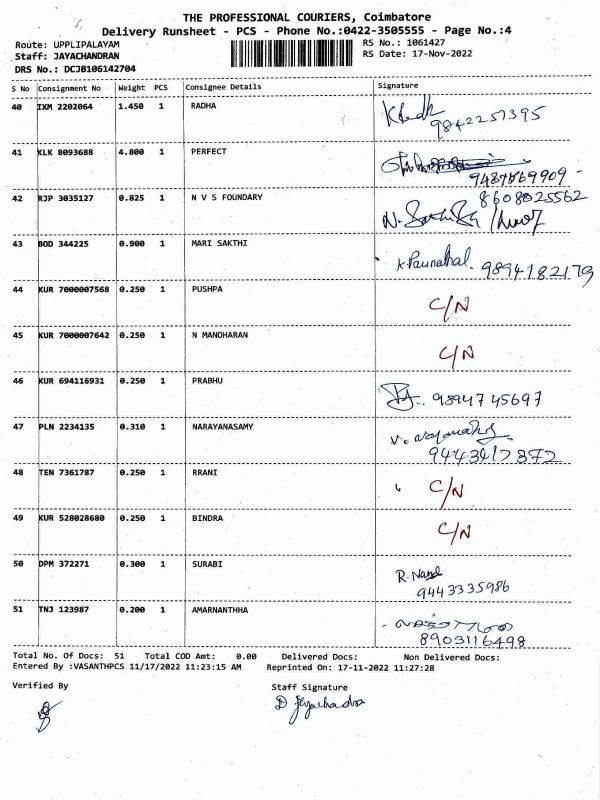 THE PROFESSIONAL COURIERS, Coimbatore
Delivery Runsheet - PCS - Phone No.:0422-3505555 - Page No.:4
Route: UPPLIPALAYAM RS No.: 1061427
Staff: JAYACHANDRAN RS Date: 17-Nov-2022
DRS No.: DCJB106142704
S No Consignment No Weight PCS Consignee Details Signature
40 IXM 2202064 1.450 1 RADHA
9842257395
41 KLK 8093688 4.800 1 PERFECT
9487869909 -
42 RJP 3035127 0.825 1 N V S FOUNDARY 8608825562
43 BOD 344225 0.900 1 MARI SAKTHI
9894182179
44 KUR 7000007568 0.250 1 PUSHPA
C/N
45 KUR 7000007642 0.250 1 N MANOHARAN
C/N
46 KUR 694116931 0.250 1 PRABHU
9894745697
47 PLN 2234135 0.310 1 NARAYANASAMY
48 TEN 7361787 0.250 1 RRANI
C/N
49 KUR 528028680 0.250 1 BINDRA
C/N
50 DPM 372271 0.300 1 SURABI
R. Nand
9443335986
51 TNJ 123987 0.200 1 AMARNANTHHA
8903116498
Total No. Of Docs: 51 Total COD Amt: 0.00 Delivered Docs: Non Delivered Docs:
Entered By :VASANTHPCS 11/17/2022 11:23:15 AM Reprinted On: 17-11-2022 11:27:28
Verified By Staff Signature